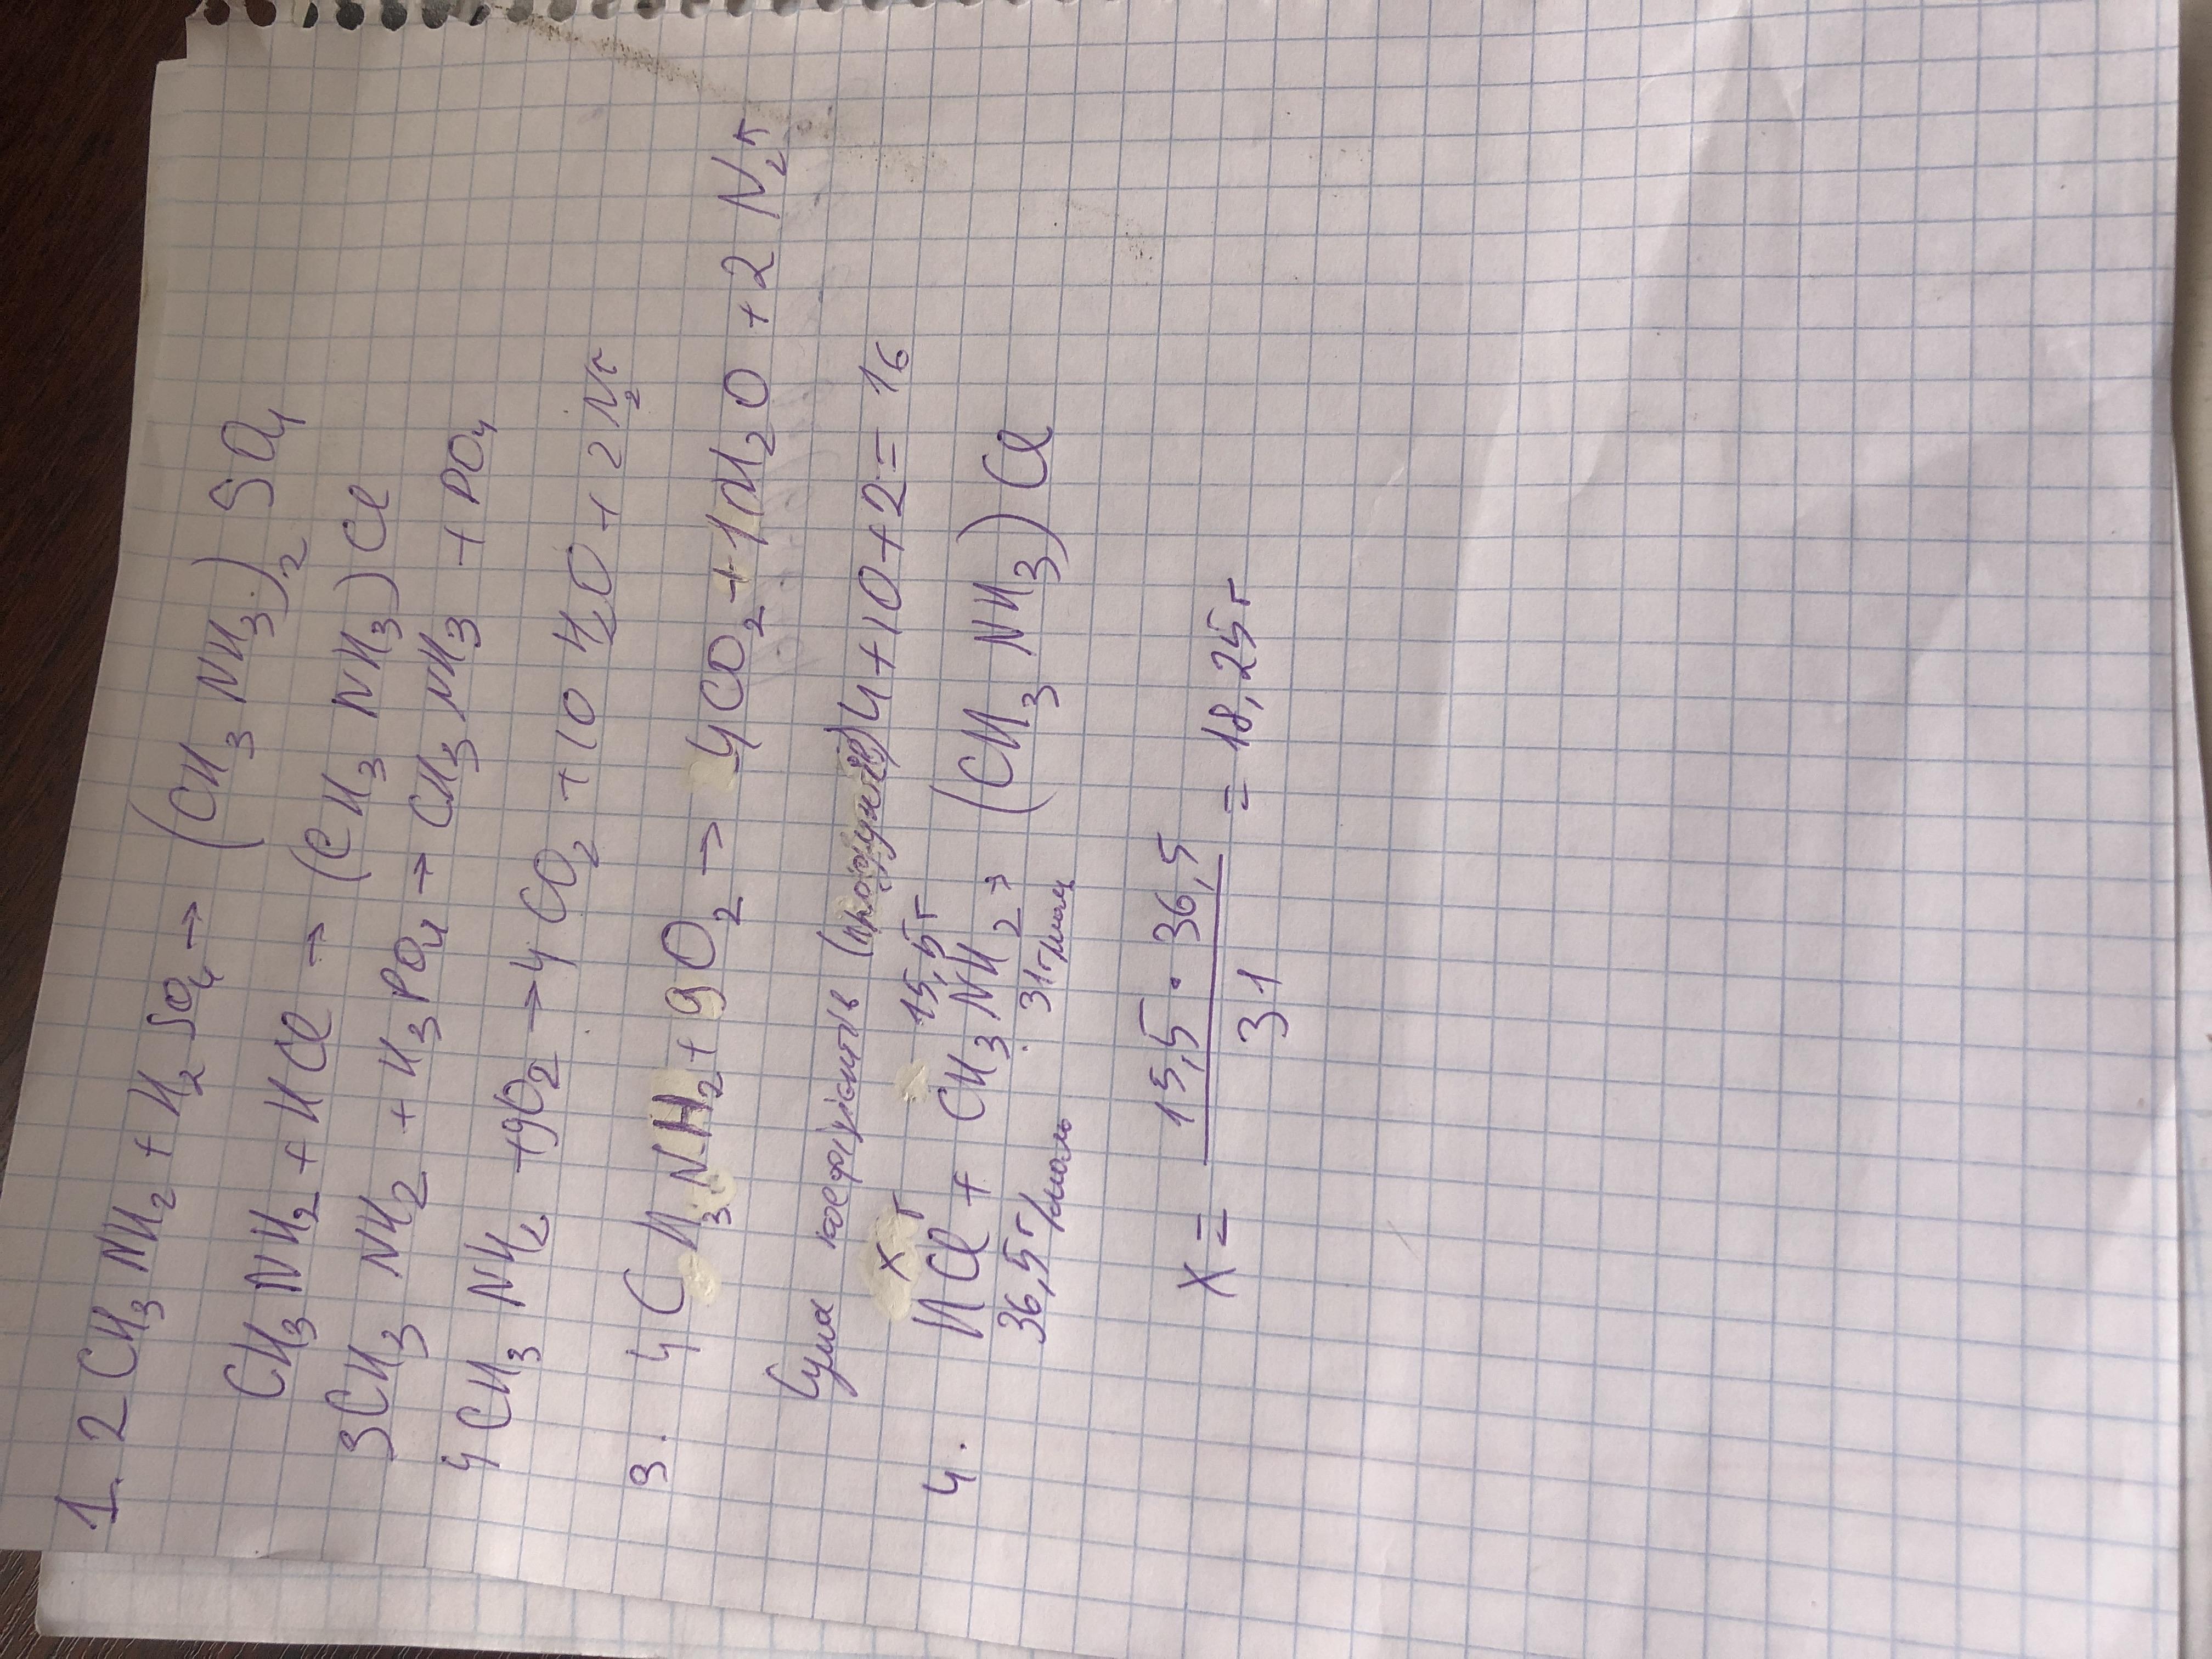 1. 2CH₃NH₂ + H₂SO₄ → (CH₃NH₃)₂SO₄
CH₃NH₂ + HCl → (CH₃NH₃)Cl
3CH₃NH₂ + H₃PO₄ → CH₃NH₃ + PO₄
4CH₃NH₂ + 9O₂ → 4CO₂ + 10H₂O + 2N₂↑
3. 4CH₃NH₂ + 9O₂ → 4CO₂ + 10H₂O + 2N₂↑
Сума коефіцієнтів (продуктів) 4+10+2=16
x г 15,5г
4. HCl + CH₃NH₂ → (CH₃NH₃)Cl
36,5г/моль 31г/моль
x = 15,5 · 36,5 / 31 = 18,25г